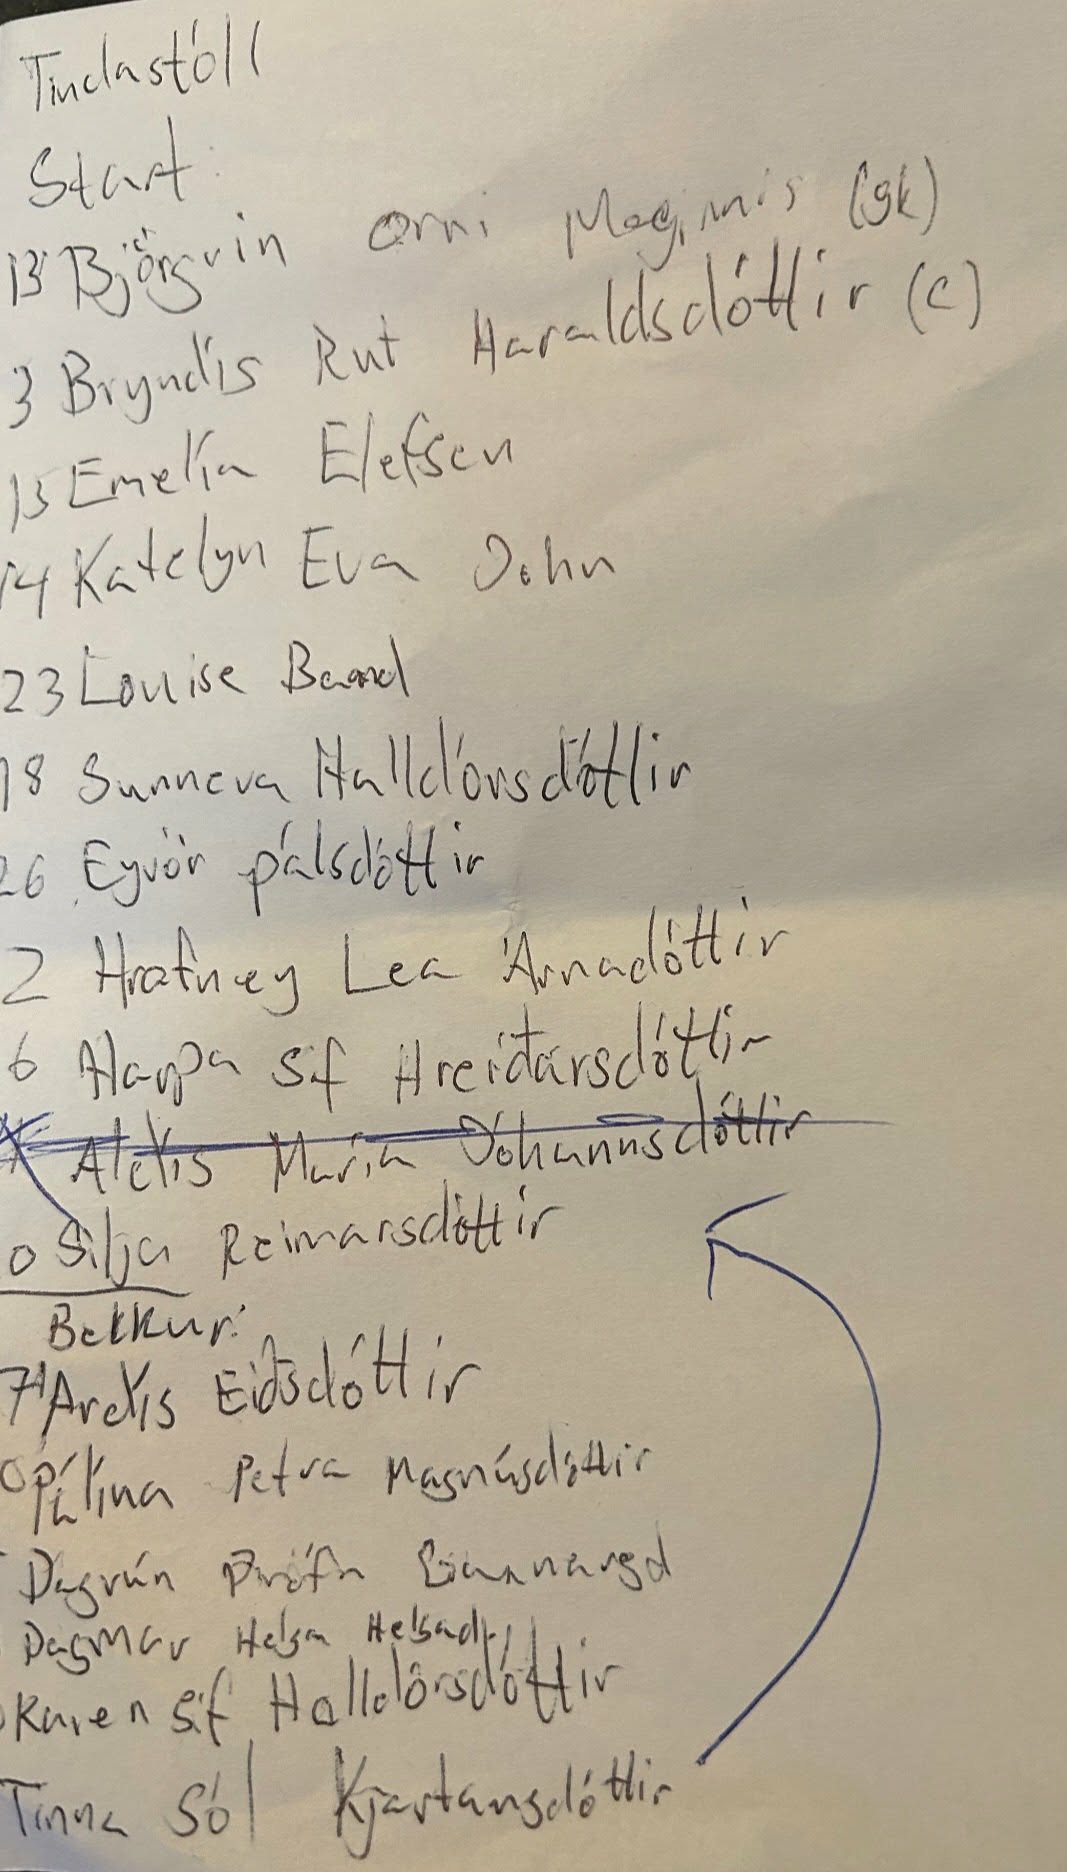 Tindastóll
Start:
13 Björgvin Orri Meginnis (gk)
3 Bryndís Rut Haraldsdóttir (c)
15 Emelía Elefsen
14 Katelyn Eva John
23 Louise
18 Sunneva Halldórsdóttir
26 Eyvör pálsdóttir
2 Hrafney Lea Árnadóttir
6 Harpa Sif Hreiðarsdóttir
Aldís María Jóhannsdóttir
0 Silja Reimarsdóttir
Bekkur:
71 Ardís Eiðsdóttir
0 Pálína Petra Magnúsdóttir
Dagrún
Dagmar Helga Helgad
Karen Sif Halldórsdóttir
Tinna Sól Kjartansdóttir